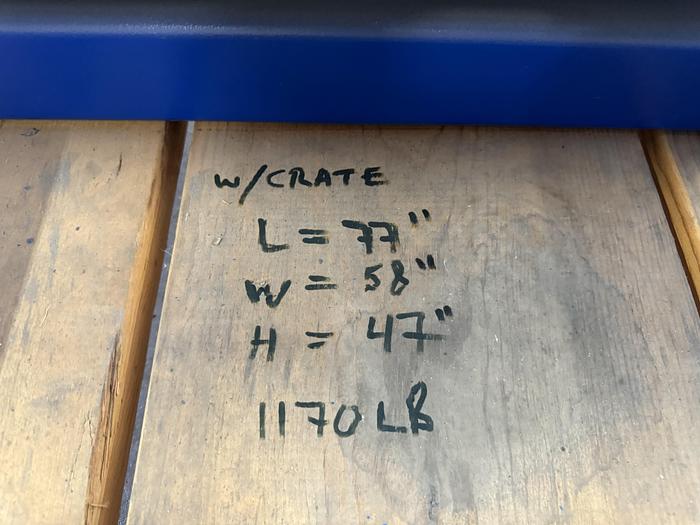 W/CRATE
L = 77"
W = 58"
H = 47"
1170 LB